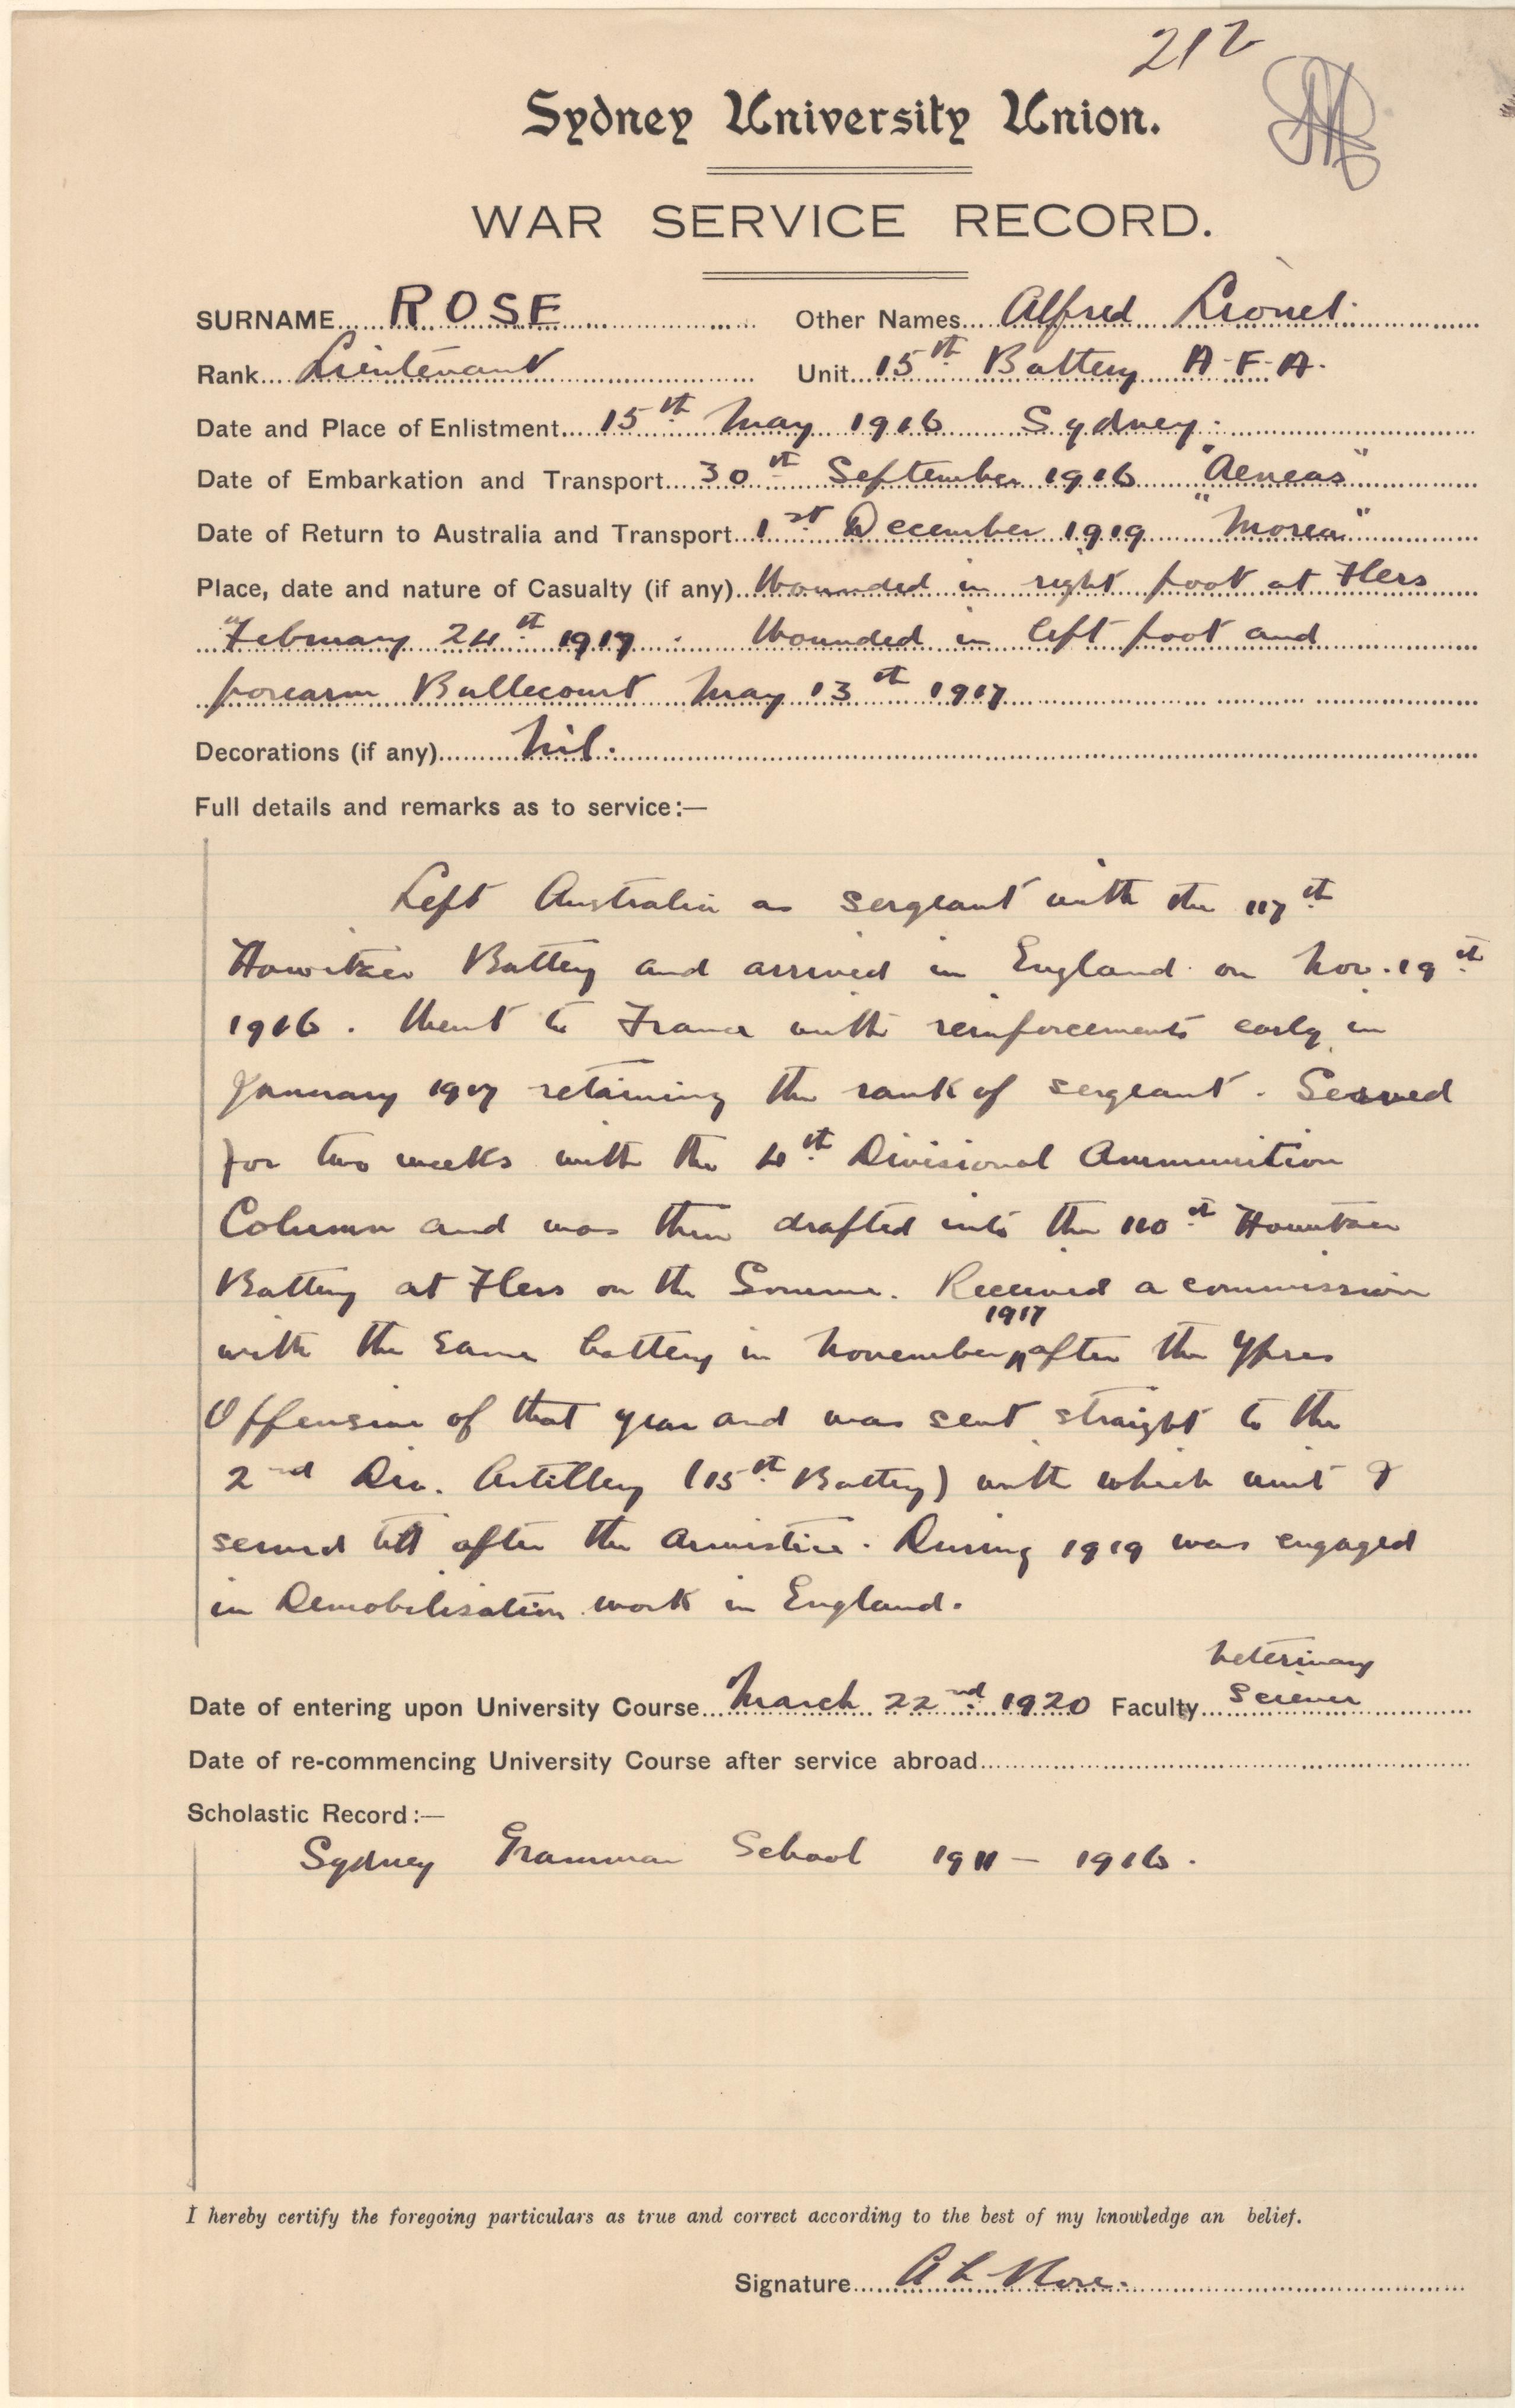 212
Sydney University Union.
WAR SERVICE RECORD.
SURNAME ROSE Other Names Alfred Lionel.
Rank Lieutenant Unit 15th Battery A.F.A.
Date and Place of Enlistment 15th May 1916 Sydney.
Date of Embarkation and Transport 30th September 1916 "Aeneas"
Date of Return to Australia and Transport 1st December 1919 "Morea"
Place, date and nature of Casualty (if any) Wounded in right foot at Flers
February 24th 1917. Wounded in left foot and
forearm Bullecourt May 13th 1917
Decorations (if any) Nil.
Full details and remarks as to service:—
Left Australia as sergeant with the 117th
Howitzer Battery and arrived in England on Nov. 19th
1916. Went to France with reinforcements early in
January 1917 retaining the rank of sergeant. Served
for two weeks with the 4th Divisional Ammunition
Column and was then drafted into the 110th Howitzer
Battery at Flers on the Somme. Received a commission
with the same battery in November 1917 after the Ypres
Offensive of that year and was sent straight to the
2nd Div. Artillery (15th Battery) with which unit I
served till after the Armistice. During 1919 was engaged
in Demobilisation work in England.
Veterinary
Date of entering upon University Course March 22nd 1920 Faculty Science
Date of re-commencing University Course after service abroad
Scholastic Record:—
Sydney Grammar School 1911 – 1916.
I hereby certify the foregoing particulars as true and correct according to the best of my knowledge an belief.
Signature A L Rose.